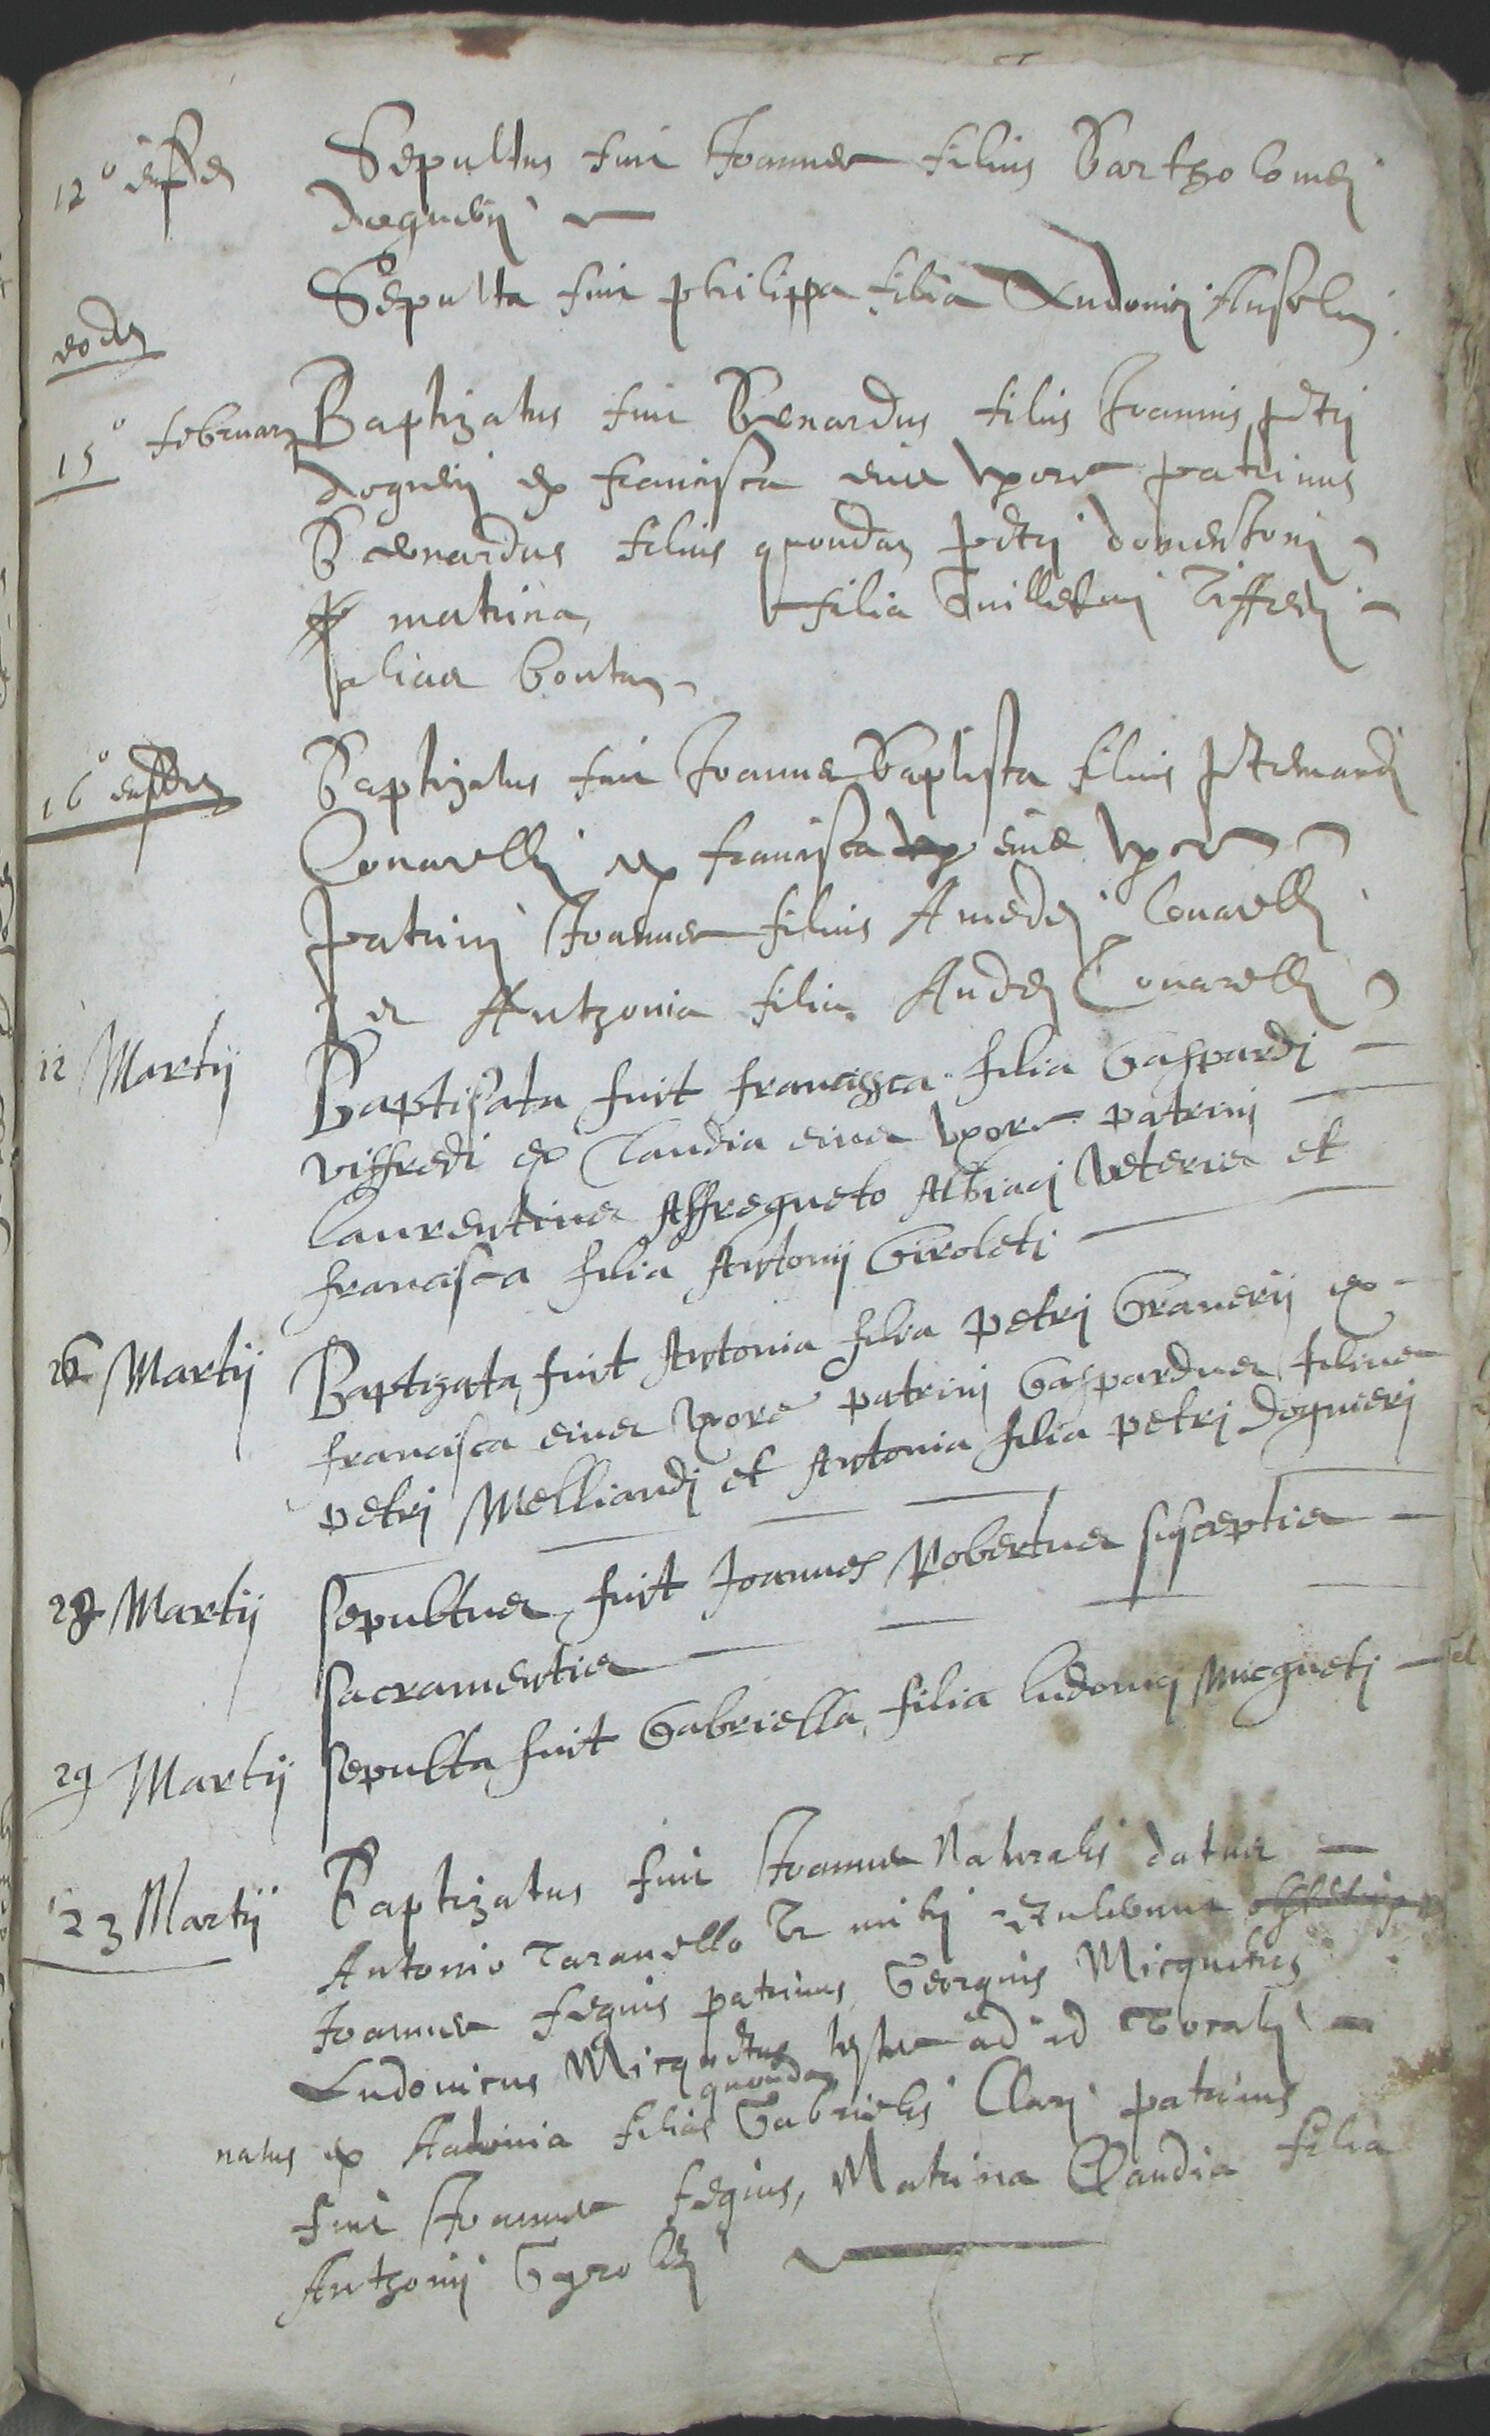 12° eiusdem Sepultus fuit Joannes filius Bartholomei
dognerii
eodem Sepulta fuit philippa filia Ludovici Anselmi
15° februarii Baptizatus fuit Bernardus filius Joannis petri
dognerii ex francisca eius uxore patrinus
Bernardus filius quondam petri
matrina, filia Guillelmi Viffredi
alias bouten
16° eiusdem Baptizatus fuit Joannes Baptista filius
Convelli ex francisca eius uxore
patrini Joannes filius Amedei Conavelli
et Anthonia filia Andree Conavelli
12 Martij Baptisata fuit francisca filia Gaspardi
viffredi ex Claudia eius uxore patrini
Laurentius Affregneto Albiaci veteris et
francisca filia Antonij Giroleti
26 Martij Baptizata fuit Antonia filia petri Granerij ex
francisca eius uxore patrini Gaspardus filius
petri Melliandi et Antonia filia petri dognieri
28 Martij sepultus fuit Joannes Robertus susceptis
sacramentis
29 Martij sepulta fuit Gabriella filia ludovici Micgneti
23 Martij Baptizatus fuit Joannes Naturalis datus
Antonio Taravello
Joannes fegius patrinus Georgius Micgnetus
Ludovicus Micgnetus testes ad id vocati
quondam
natus ex Antonia filia Gabrielis Clari patrinus
fuit Joannes fegius, Matrina Claudia filia
Anthonii Gyroleti